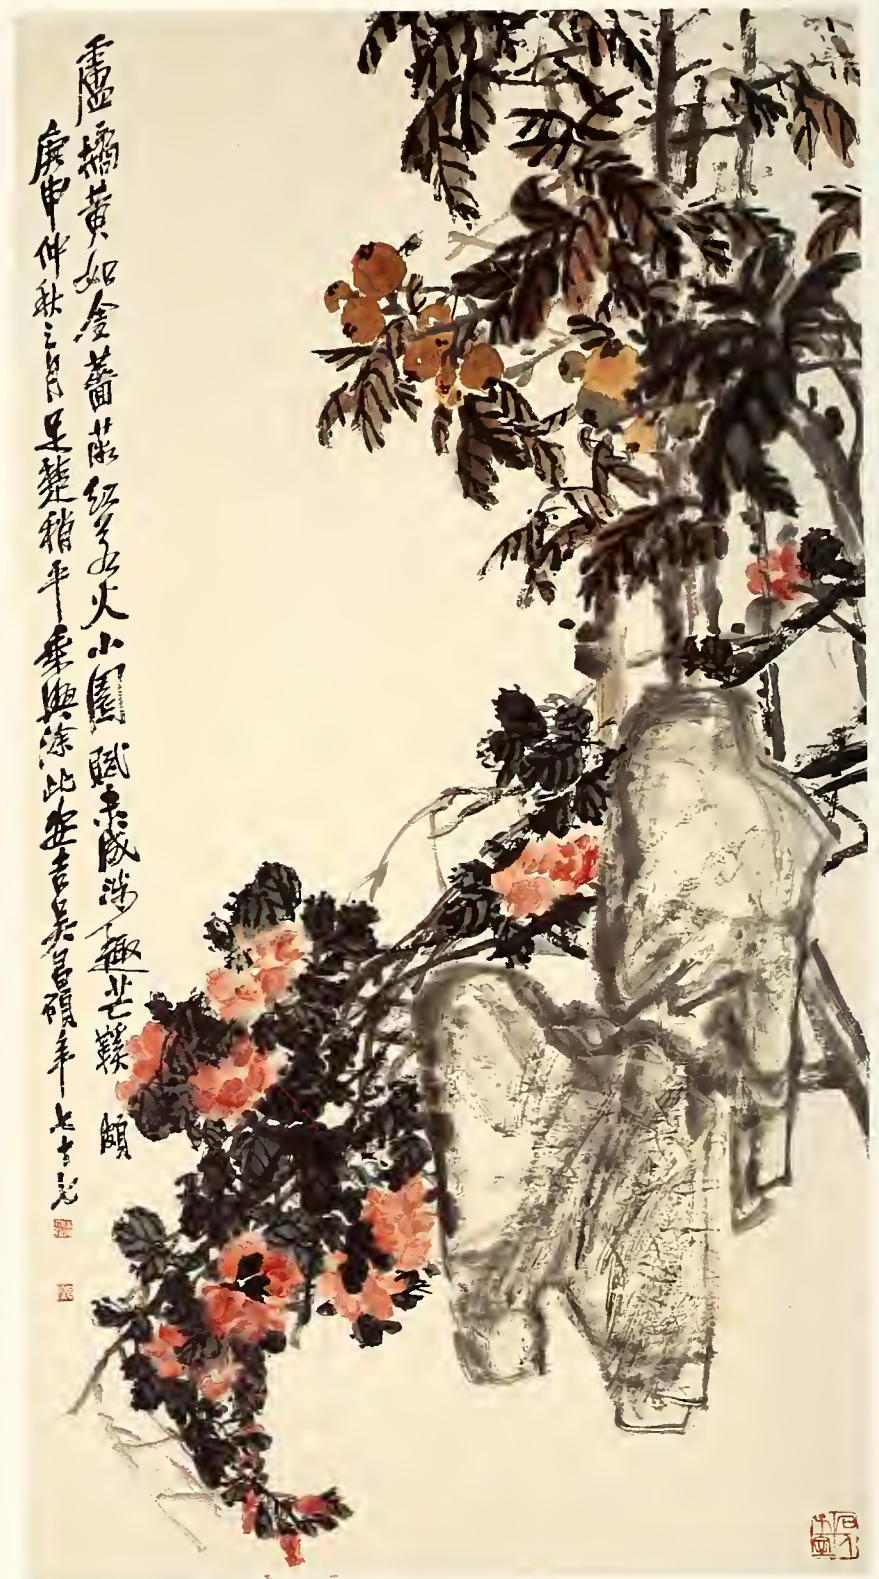 盧橘黃如金薔薇紅若火小園賦未成涉趣芒鞵頗
庚申仲秋之月足楚稍平乘興涂此安吉吳昌碩年七十七